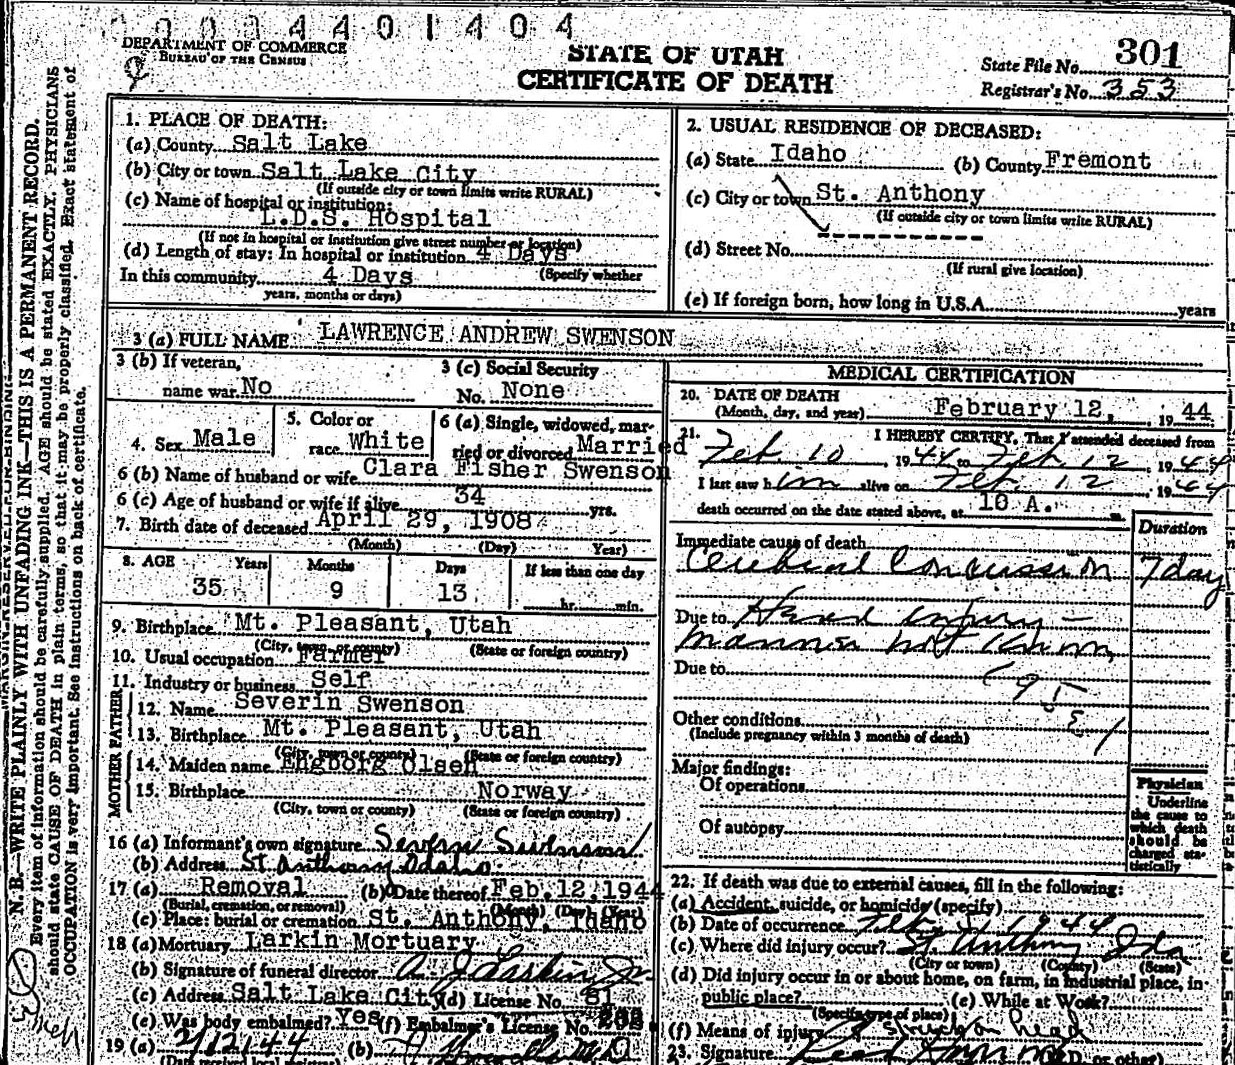 0 0 0 4 4 0 1 4 0 4
DEPARTMENT OF COMMERCE
BUREAU OF THE CENSUS
STATE OF UTAH
CERTIFICATE OF DEATH
State File No. 301
Registrar's No. 353
N. B.—WRITE PLAINLY WITH UNFADING INK—THIS IS A PERMANENT RECORD.
Every item of information should be carefully supplied. AGE should be stated EXACTLY. PHYSICIANS
should state CAUSE OF DEATH in plain terms, so that it may be properly classified. Exact statement of
OCCUPATION is very important. See instructions on back of certificate.
1. PLACE OF DEATH:
(a) County Salt Lake
(b) City or town Salt Lake City
(If outside city or town limits write RURAL)
(c) Name of hospital or institution:
L.D.S. Hospital
(If not in hospital or institution give street number or location)
(d) Length of stay: In hospital or institution 4 Days
(Specify whether
In this community 4 Days
years, months or days)
2. USUAL RESIDENCE OF DECEASED:
(a) State Idaho (b) County Fremont
(c) City or town St. Anthony
(If outside city or town limits write RURAL)
(d) Street No.
(If rural give location)
(e) If foreign born, how long in U.S.A. years
3 (a) FULL NAME LAWRENCE ANDREW SWENSON
3 (b) If veteran, name war No
3 (c) Social Security No. None
4. Sex Male
5. Color or race White
6 (a) Single, widowed, married or divorced Married
6 (b) Name of husband or wife Clara Fisher Swenson
6 (c) Age of husband or wife if alive 34 yrs.
7. Birth date of deceased April 29, 1908
(Month) (Day) Year)
8. AGE Years Months Days If less than one day
35 9 13 hr. min.
9. Birthplace Mt. Pleasant, Utah
(City, town, or county) (State or foreign country)
10. Usual occupation Farmer
11. Industry or business Self
FATHER
12. Name Severin Swenson
13. Birthplace Mt. Pleasant, Utah
(City, town or county) (State or foreign country)
MOTHER
14. Maiden name Engborg Olsen
15. Birthplace Norway
(City, town or county) (State or foreign country)
16 (a) Informant's own signature Severn Swenson
(b) Address St. Anthony Idaho
17 (a) Removal (b) Date thereof Feb. 12, 1944
(Burial, cremation, or removal) (Month) (Day) (Year)
(c) Place: burial or cremation St. Anthony, Idaho
18 (a) Mortuary Larkin Mortuary
(b) Signature of funeral director A J Larkin Jr.
(c) Address Salt Lake City (d) License No. 81
(e) Was body embalmed? Yes (f) Embalmer's License No.
19 (a) 2/12/44 (b) M.D.
(Date received local
MEDICAL CERTIFICATION
20. DATE OF DEATH
(Month, day, and year) February 12, 1944
21. I HEREBY CERTIFY, That I attended deceased from
Feb 10, 1944 to Feb. 12, 1944
I last saw him alive on Feb. 12, 1944
death occurred on the date stated above, at 10 A. m.
Duration
Immediate cause of death
Cerebral Concussion 7 day
Due to Head injury —
manner not known
Due to
195
Other conditions
(Include pregnancy within 3 months of death)
Major findings:
Of operations
Of autopsy
Physician
Underline the cause to which death should be charged statistically
22. If death was due to external causes, fill in the following:
(a) Accident, suicide, or homicide (specify)
(b) Date of occurrence Feb 1944
(c) Where did injury occur? St. Anthony Ida
(City or town) (County) (State)
(d) Did injury occur in or about home, on farm, in industrial place, in
public place? (e) While at Work?
(Specify type of place)
(f) Means of injury struck on head
23. Signature (M.D. or other)